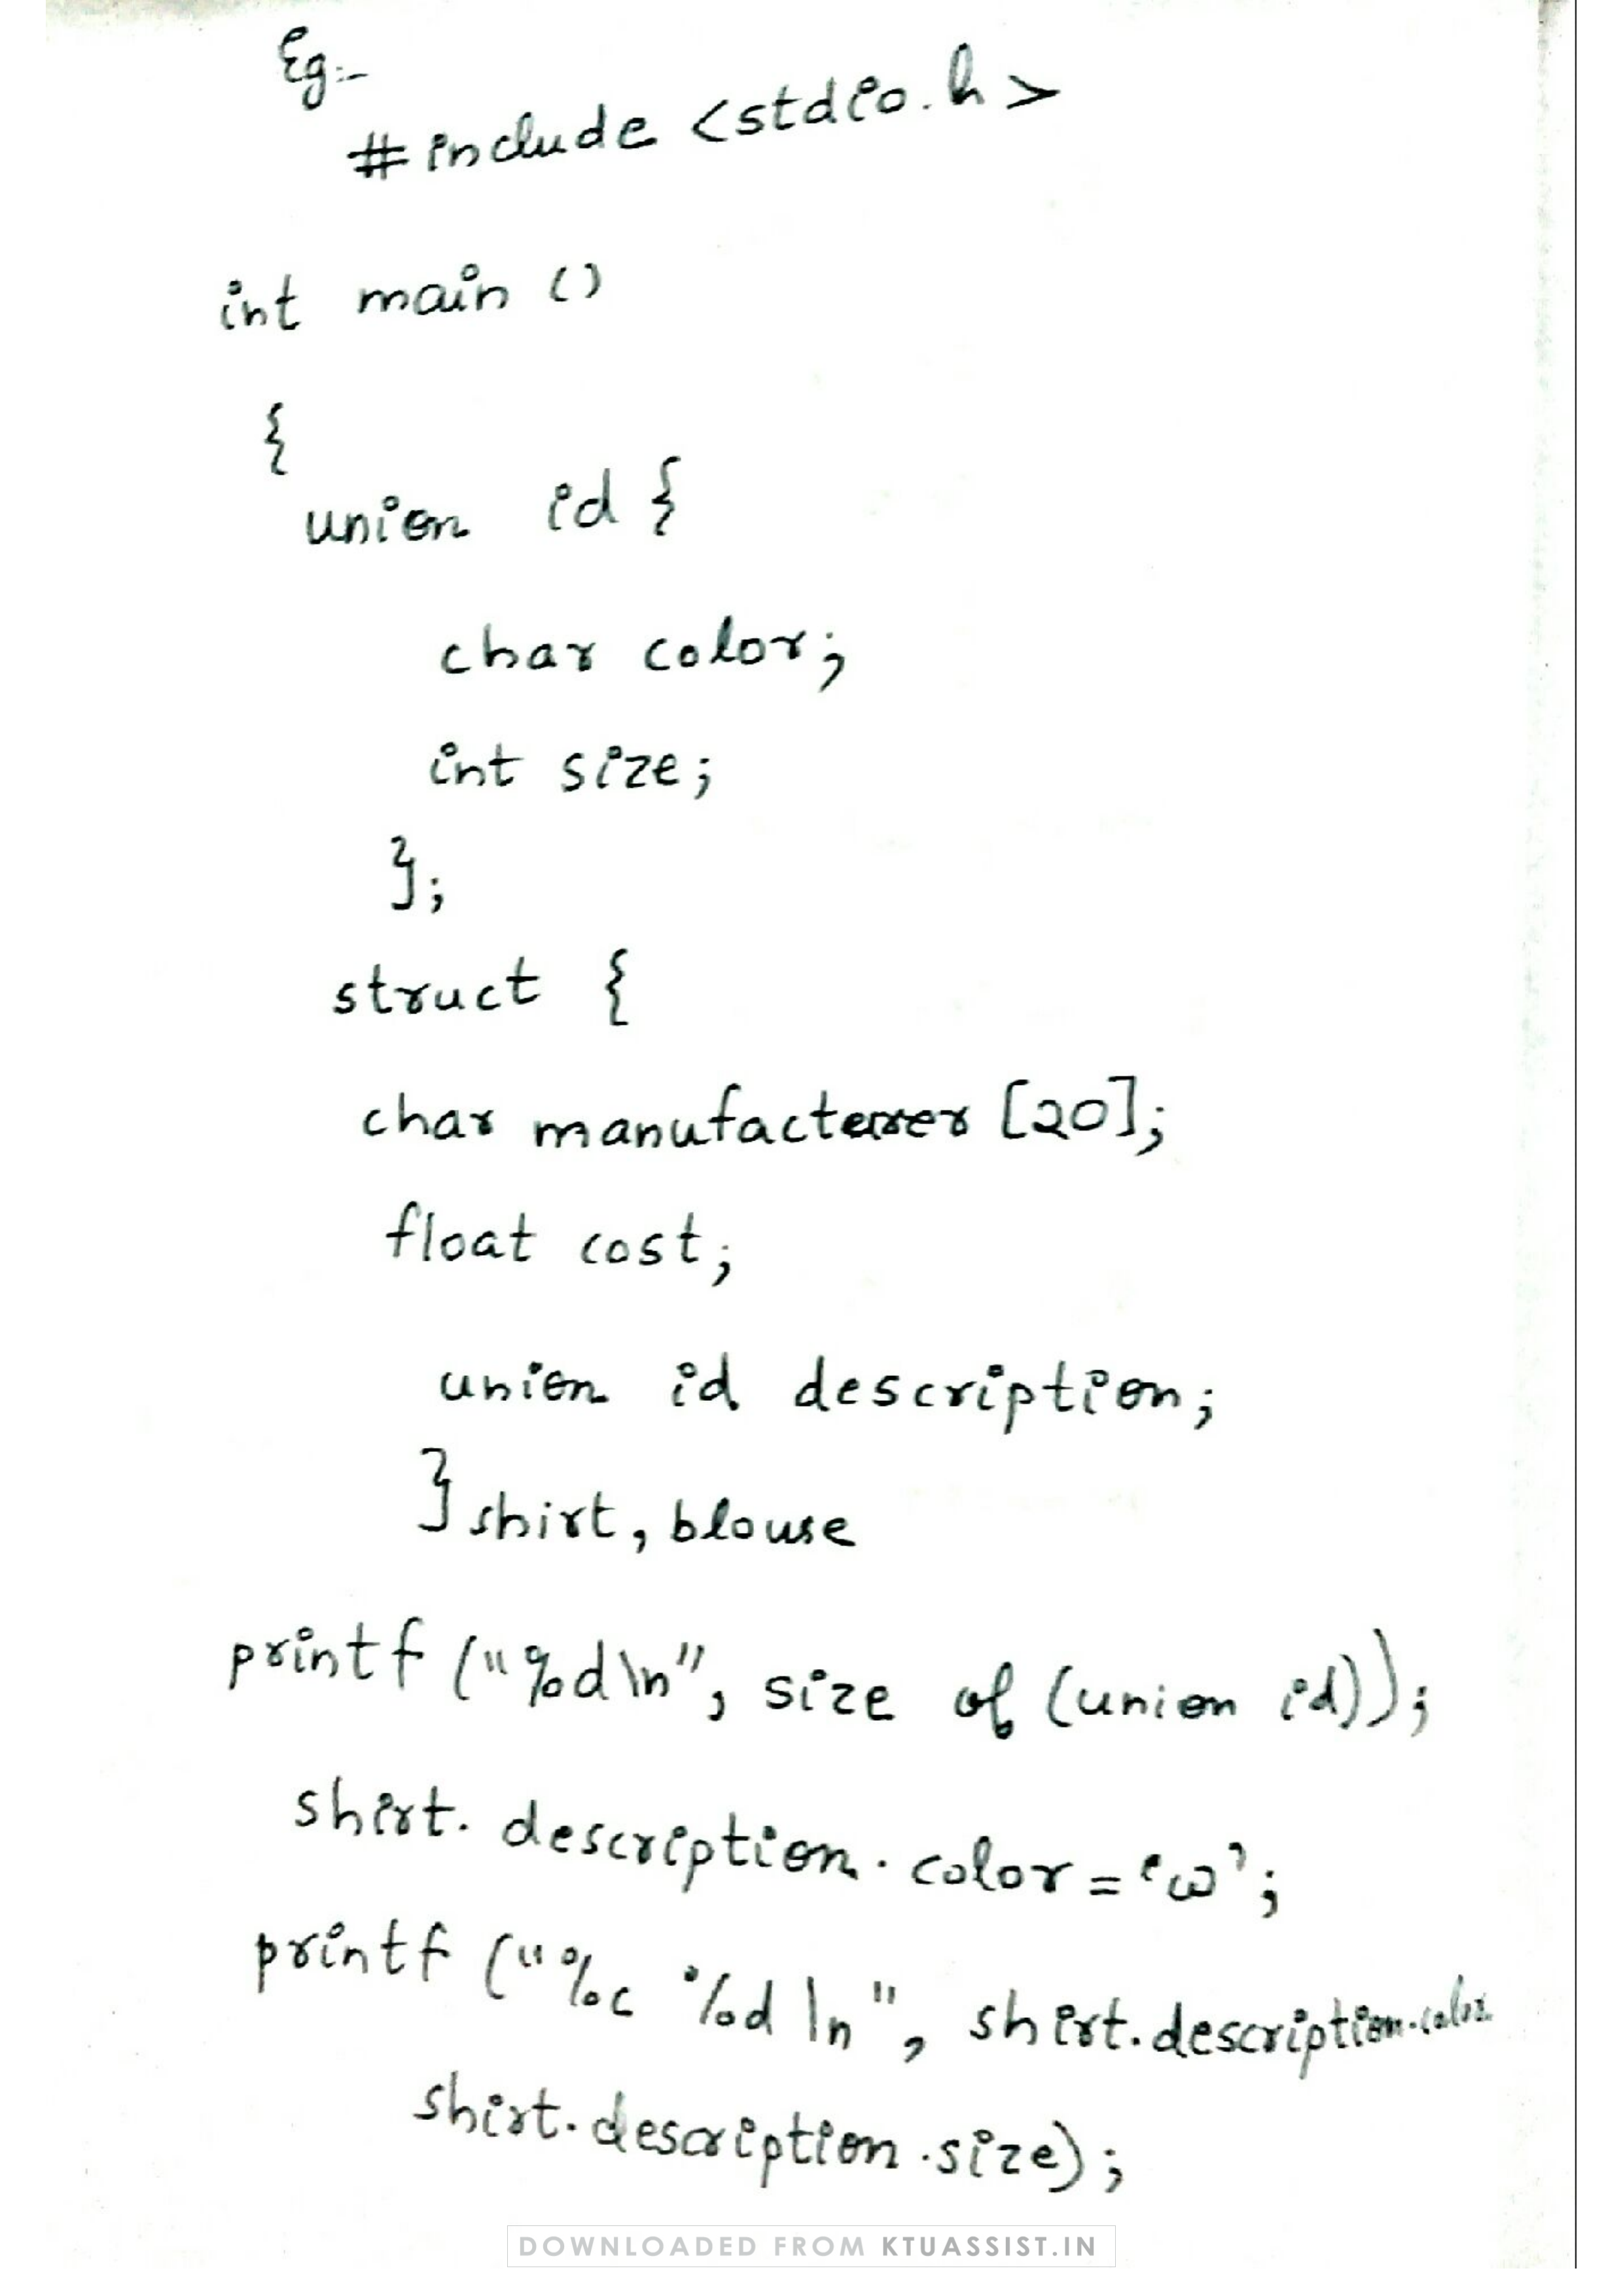 Eg:-
#include <stdio.h>
int main ()
{
union id {
char color;
int size;
};
struct {
char manufacterer [20];
float cost;
union id description;
} shirt, blouse
printf ("%d\n", size of (union id));
shirt. description. color = 'w';
printf ("%c %d \n", shirt.description.color
shirt.description.size);
DOWNLOADED FROM KTUASSIST.IN